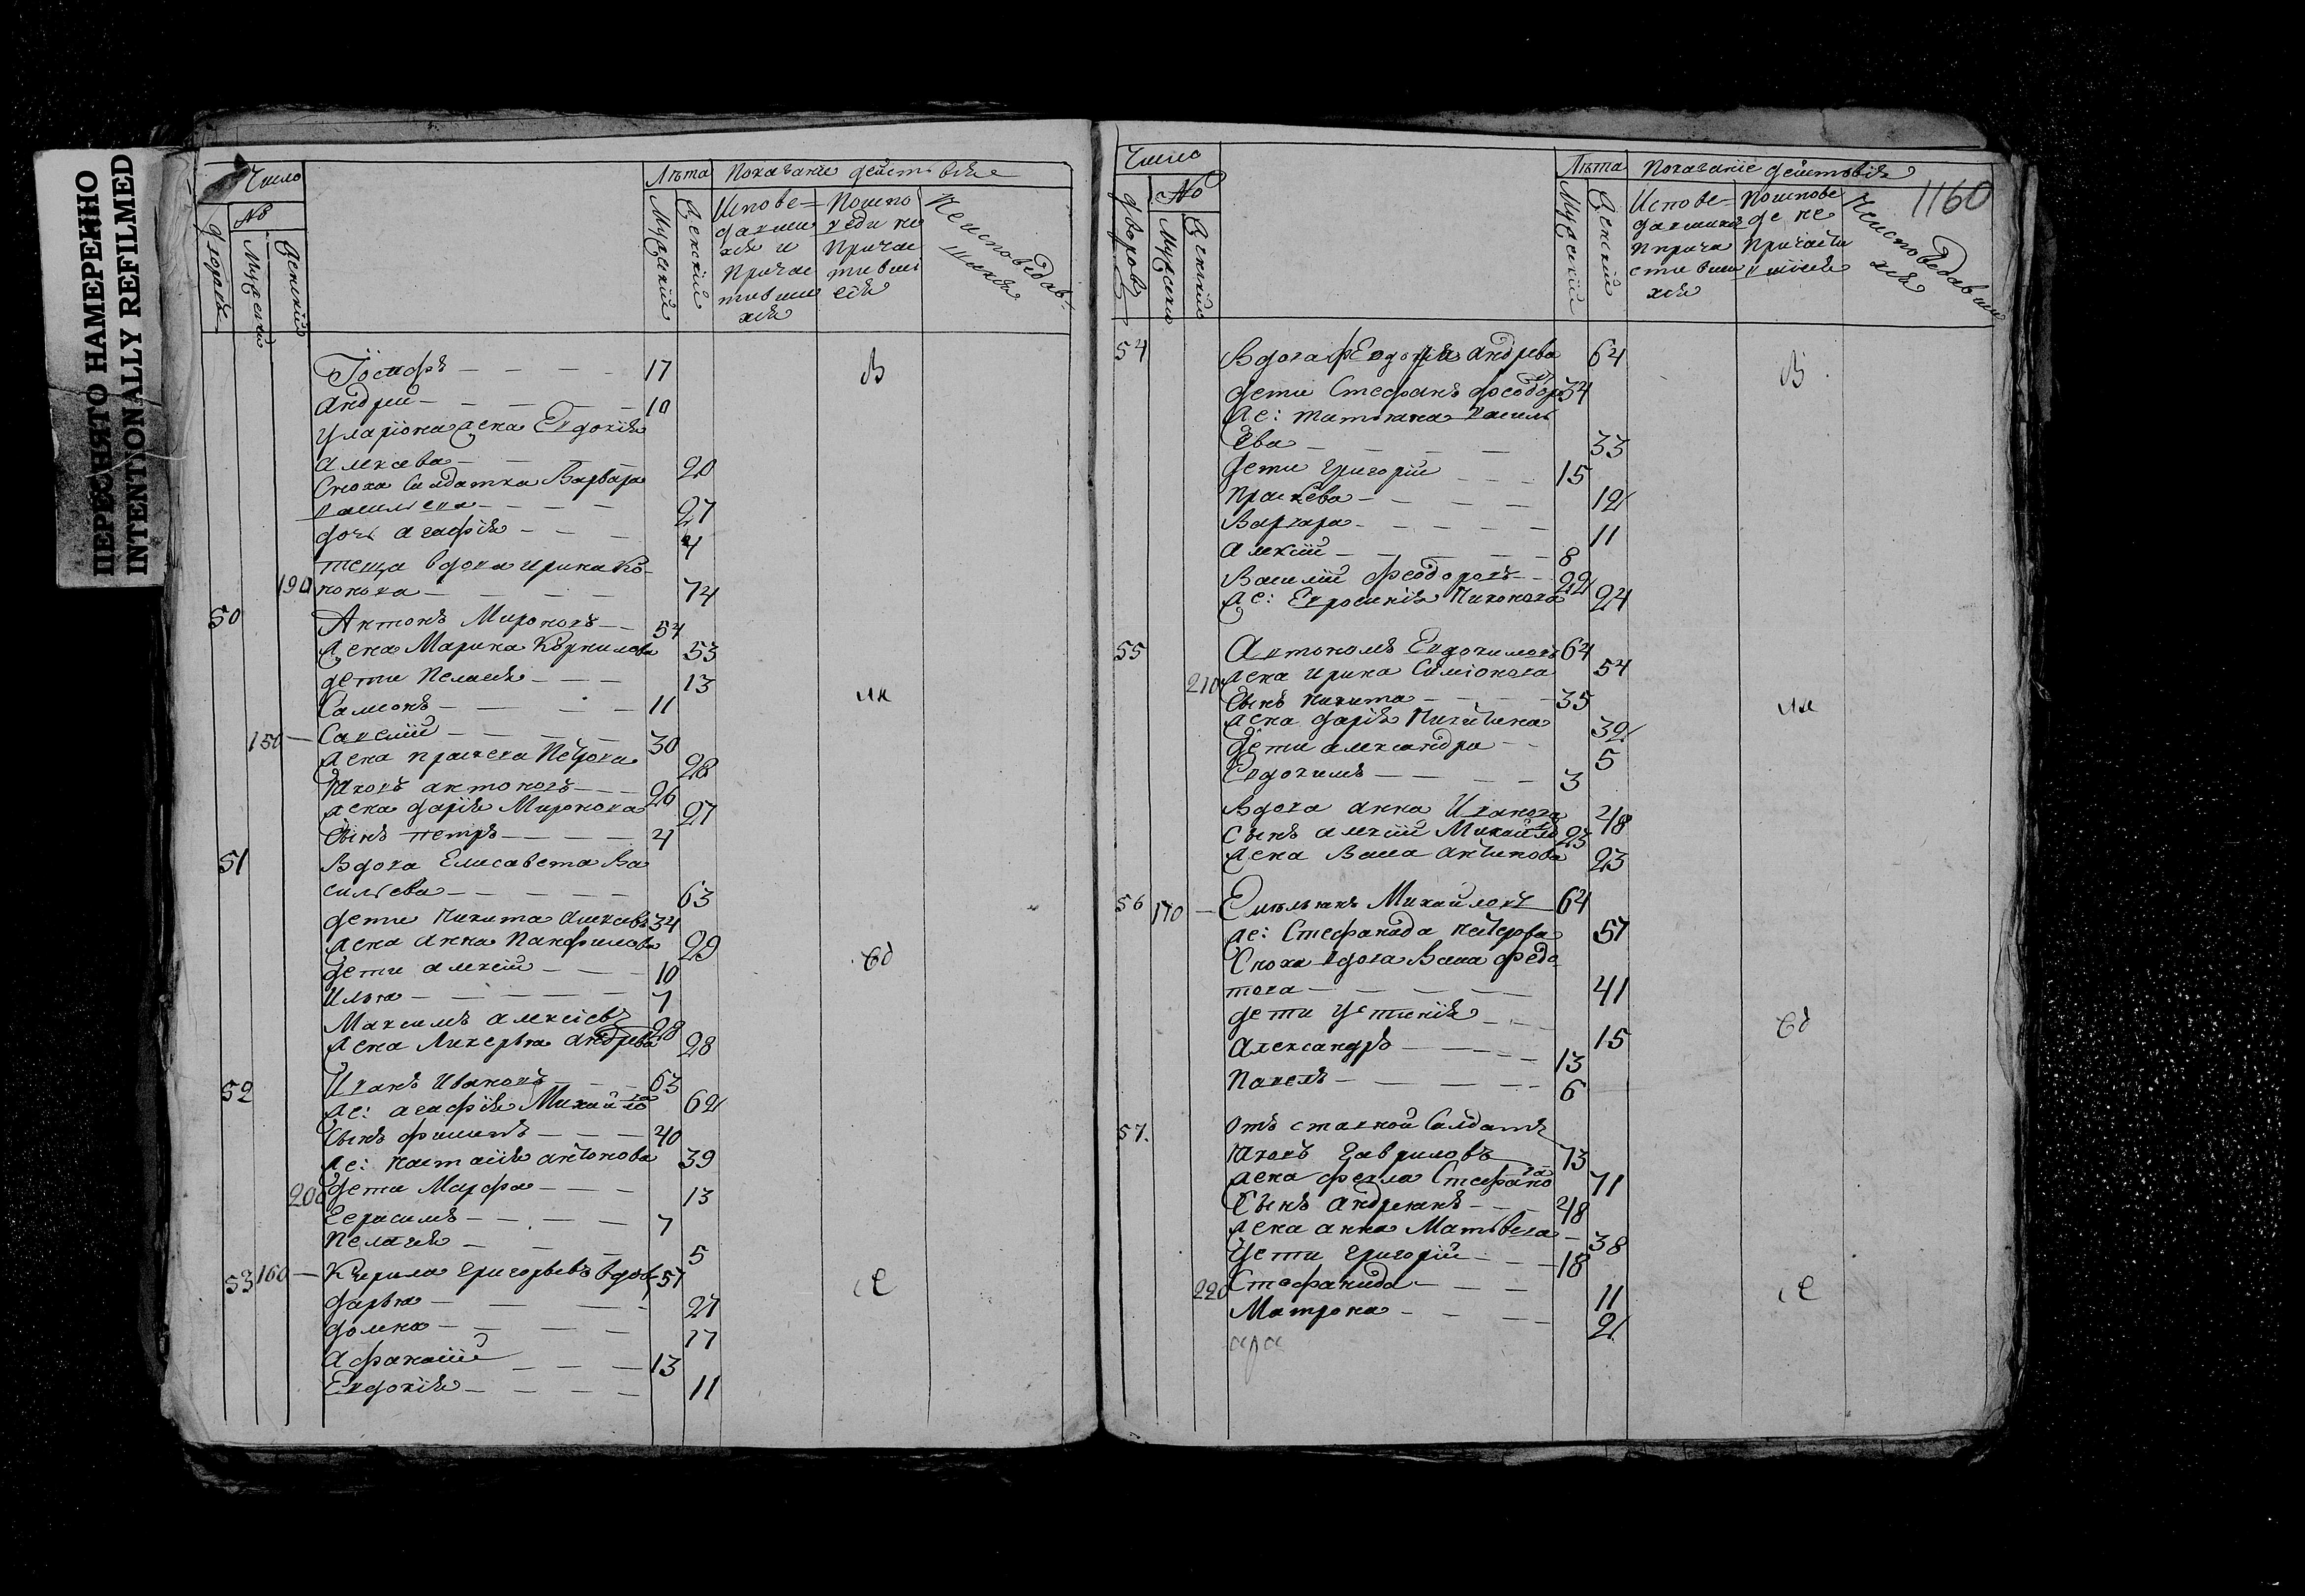 ПЕРЕСНЯТО НАМЕРЕННО
INTENTIONALLY REFILMED
Число
№
дворовъ
Мужескій
Женскій
Лѣта
Мужескій
Женскій
Показаніе действія
Испове=
давши
хся и
Причас
тивши
хся
Поиспо
веди не
Причас
тивші
ся
Неисповедав
шихся
Іосифъ 17
Андрей 10
Уларіона жена Евдокія
Алексеева 20
Сноха Салдатка Варвара
Васильева 27
дочь Агафія 4
теща вдова Ирина Ко-
190 нонова 74
50 Антонъ Мироновъ 54
Жена Марина Корнилова 53
дети Пелагея 13
Самсонъ 11
150 Савелій 30
жена Прасковья Петрова 28
Яковъ Антоновъ 26
жена Дарія Миронова 27
Сынъ Петръ 4
51 Вдова Елисавета Ва
сильева 63
дети Никита Алексеевъ 34
жена Анна Панфилова 29
дети Алексей 10
Илья 7
Максимъ Алексіевъ 28
жена Лукерья Андреева 28
52 Иванъ Ивановъ 63
же: Агафія Михайлова 62
Сынъ Филипъ 40
же: Настасія Антонова 39
200 дети Марфа 13
Герасимъ 7
Пелагея 5
53 160 Кирила Григорьевъ вдовъ 57
Дарья 27
Домна 17
Афанасій 13
Евдокія 11
В
ик
бд
се
Число
№
дворовъ
Мужески
Женскій
Лѣта
Мужескій
Женскій
Показаніе действія
Испове=
давшихся
Прича
стивши
хся
Поиспове
де не
Причасти
вшіеся
Неисповедавши
хся
1160
54 Вдова Евдокія Андрева 64
дети Стефанъ Феодоровъ 34
же: Татьяна Василь
ева 33
дети Григорій 15
Праскева 12
Варвара 11
Алексій 8
Василій Феодоровъ 22
же: Евросинія Никонова 24
55 Автономъ Евдокимовъ 64
210 жена Ирина Симіонова 54
Сынъ Никита 35
жена Дарія Никитина 32
дети Александра 5
Евдокимъ 3
Вдова Анна Иванова 48
Сынъ Алексій Михайловъ 23
жена Васса Антипова 23
56 170 Емельянъ Михайловъ 64
же: Стефанида Петрова 57
Сноха вдова Васса Федо
това 41
дети Устинія 15
Александръ 13
Павелъ 6
57. Отъ ставной Салдатъ
Яковъ Гавриловъ 73
жена Фекла Стефанова 71
Сынъ Андреянъ 48
жена Анна Матвеева 38
Дети Григорій 18
220 Стефанида 11
Матрона 2
В
ик
бд
се